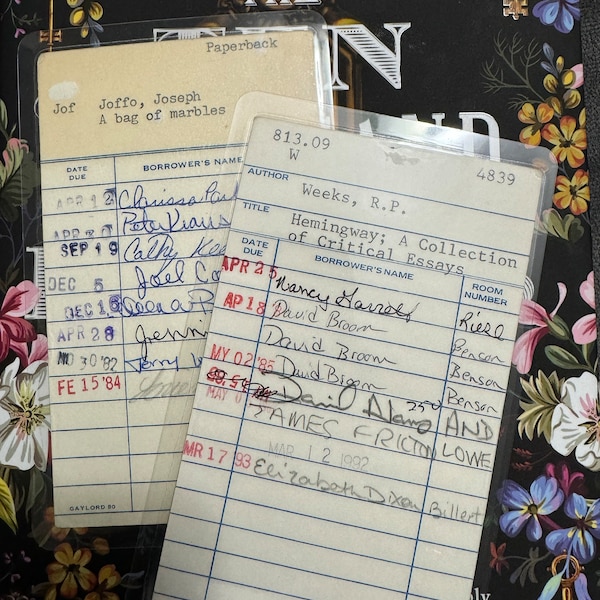 TEN
AND
Paperback
Jof Joffo, Joseph
A bag of marbles
DATE DUE
BORROWER'S NAME
APR 12 Clarissa
Pete Kraus
SEP 19 Cathy
DEC 5 Joel
DEC 16
APR 28 Jenni
30 '82
FE 15 '84
GAYLORD 80
813.09
W
4839
AUTHOR
Weeks, R.P.
TITLE
Hemingway; A Collection
of Critical Essays
DATE DUE
BORROWER'S NAME
ROOM NUMBER
APR 25 Nancy
AP 18 David Broom Benson
David Broom Benson
MY 02 '85 David Broom Benson
David 250 AND
JAMES LOWE
MAR 12 1992
MR 17 '93 Elizabeth Dixon Billert